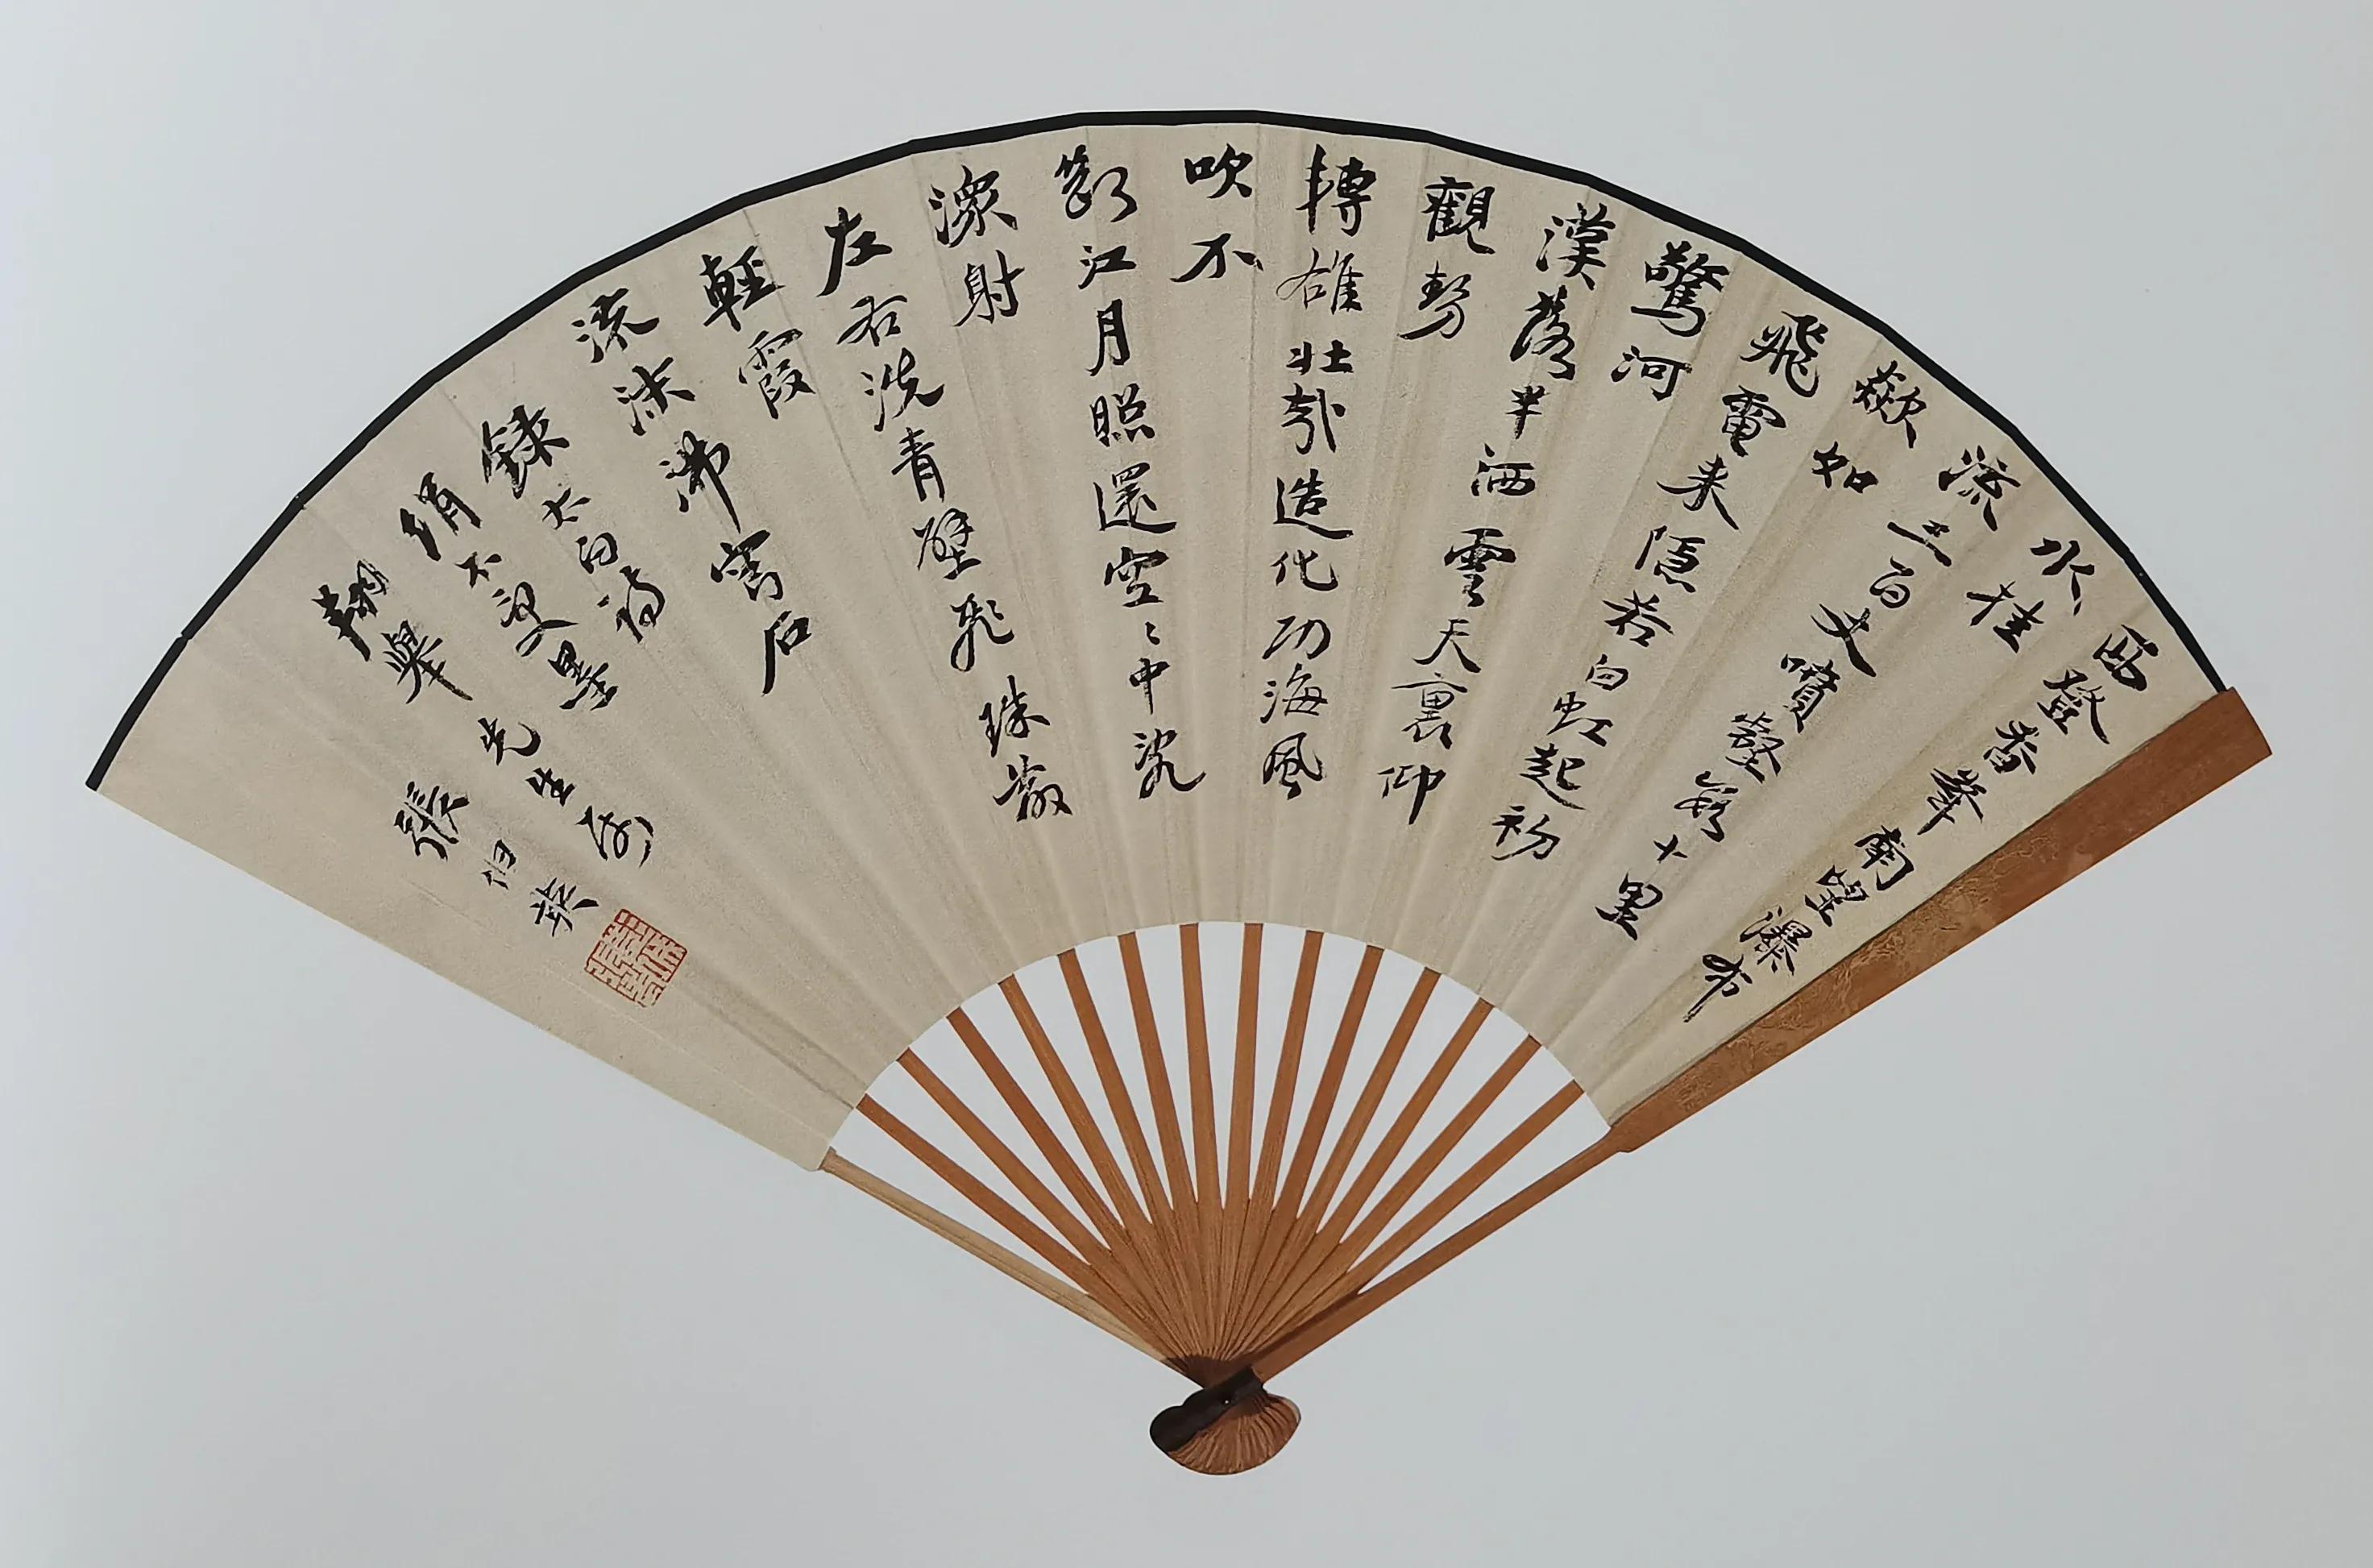 西登香峯南望瀑布
水挂
流三百丈噴壑數十里
欻如
飛電来隱若白虹起初
驚河
漢落半洒雲天裏仰
觀勢
轉雄壯哉造化功海風
吹不
斷江月照還空〻中亂
潈射
左右洗青壁飛珠散
輕霞
流沫沸穹石
錄太白詩
絹不受墨
翔舉先生
張伯英